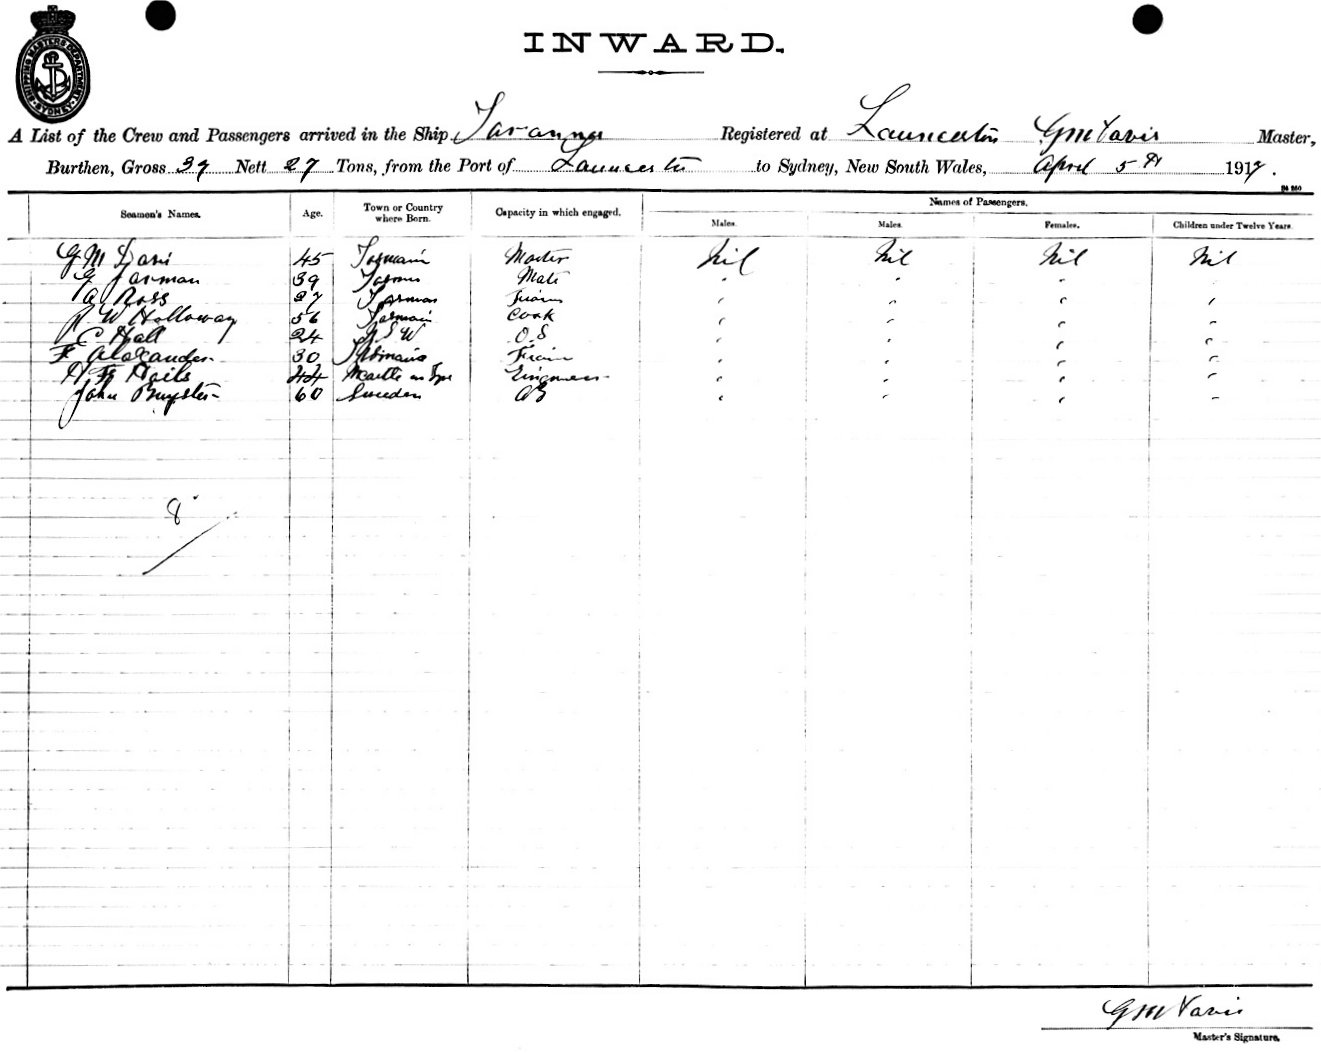 SHIPPING MASTERS DEPARTMENT SYDNEY
INWARD.
A List of the Crew and Passengers arrived in the Ship Taranna Registered at Launceston G M Davis Master,
Burthen, Gross 39 Nett 27 Tons, from the Port of Launceston to Sydney, New South Wales, April 5th 1917.
Seamen's Names. Age. Town or Country where Born. Capacity in which engaged. Names of Passengers.
Males. Males. Females. Children under Twelve Years.
G M Davis 45 Tasmania Master Nil Nil Nil Nil
G Jarman 39 Mate " " " "
A Ross 27 " " " "
R W Holloway 56 Tasmania Cook " " " "
C Hall 24 N S W O.S " " " "
F Alexander 30 Tasmania " " " "
H F Hails 44 " " " "
John 60 Sweden AB " " " "
8
G M Davis
Master's Signature.